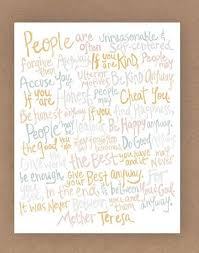 People are unreasonable &
often Self-centered
Forgive them Anyway. If you are KIND, People may
Accuse you of Ulterior motives Be Kind Anyway.
If you are Honest people may Cheat You
Be honest anyway If you find
People may be Be Happy anyway.
the good you do may be Do Good
the Best you have and it may never
be enough, Give your Best Anyway. For
you See, In the end, it is between You & God.
It was Never Between you and them anyway.
Mother Teresa